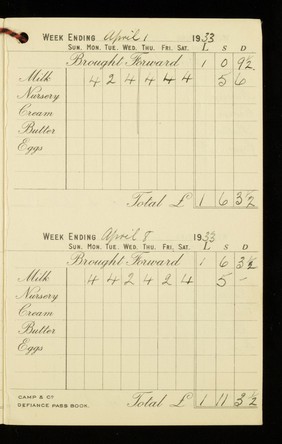 WEEK ENDING April 1 1933
SUN. MON. TUE. WED. THU. FRI. SAT. L S D
Brought Forward 1 0 9½
Milk 4 2 4 4 4 4 5 6
Nursery
Cream
Butter
Eggs
Total £ 1 6 3½
WEEK ENDING April 8 1933
SUN. MON. TUE. WED. THU. FRI. SAT. L S D
Brought Forward 1 6 3½
Milk 4 4 2 4 2 4 5 -
Nursery
Cream
Butter
Eggs
CAMP & CO
DEFIANCE PASS BOOK.
Total £ 1 11 3½